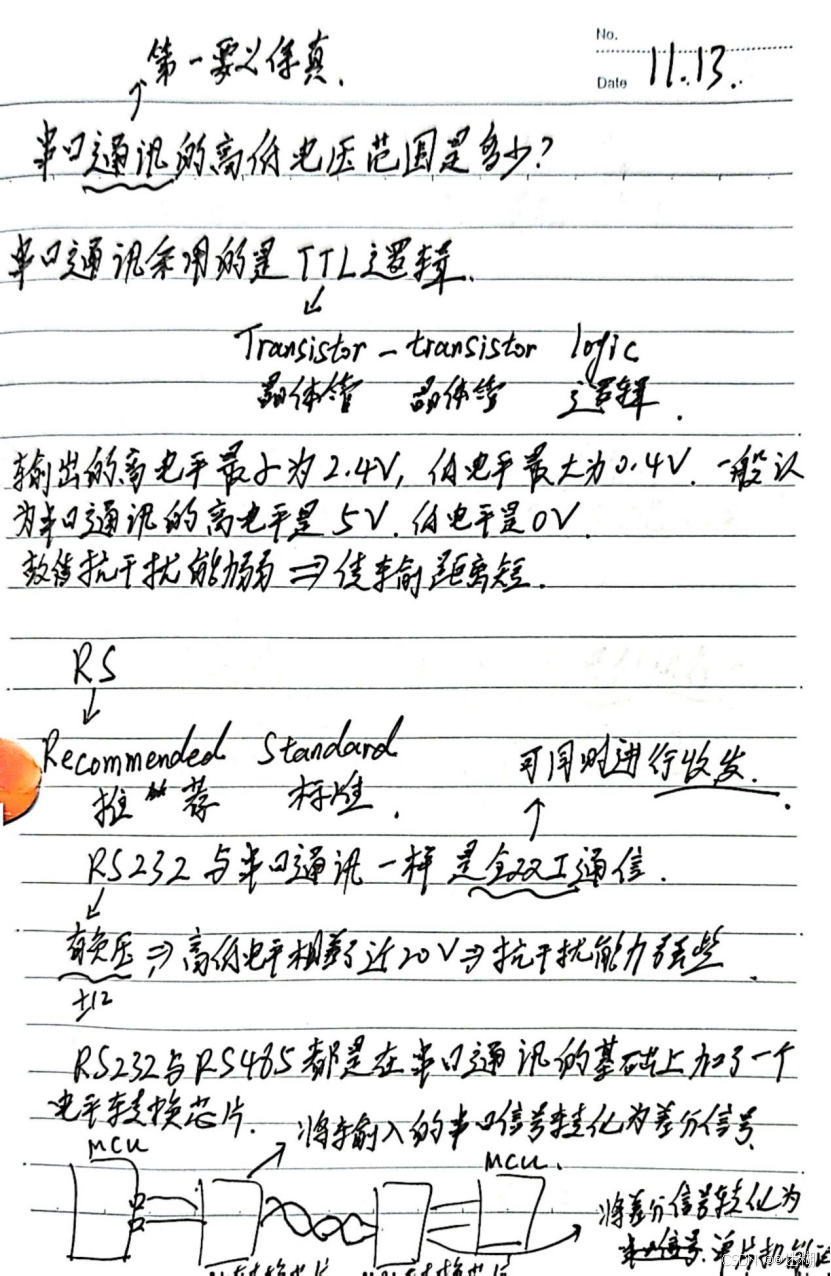 No.
第一要义保真.
Date 11.13.
串口通讯的高低电压范围是多少?
串口通讯采用的是TTL逻辑.
Transistor - transistor logic
晶体管 晶体管 逻辑.
输出的高电平最小为2.4V, 低电平最大为0.4V. 一般认
为串口通讯的高电平是5V. 低电平是0V.
数据抗干扰能力弱 ⇒ 传输距离短.
RS
Recommended Standard
推荐 标准.
可同时进行收发.
RS232与串口通讯一样是全双工通信.
有负压 ⇒ 高低电平相差了近20V ⇒ 抗干扰能力强些.
±12
RS232与RS485都是在串口通讯的基础上加了一个
电平转换芯片. 将输入的串口信号转化为差分信号.
MCU
MCU.
将差分信号转化为
单片机